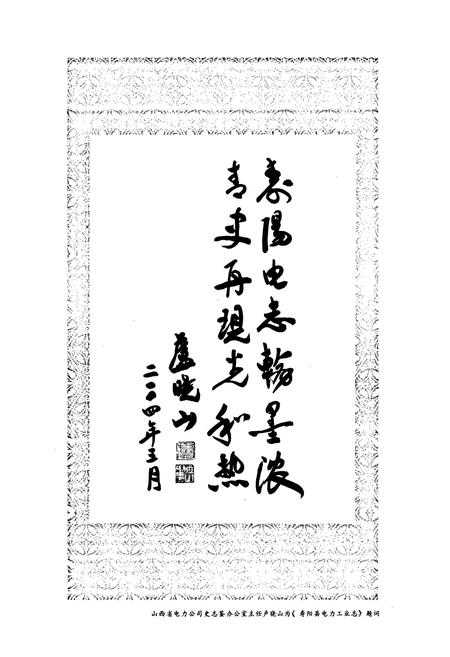 寿陽电志翰墨浓
青史再現光和熱
盧晓山
二〇〇四年三月
山西省电力公司史志鉴办公室主任卢晓山为《寿阳县电力工业志》题词